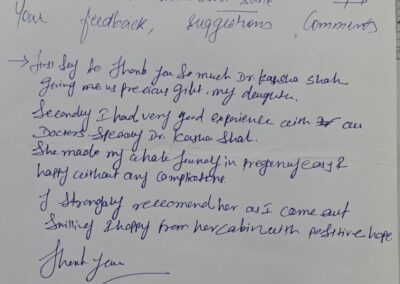 Your feedback, suggestions, Comments
→ First Say to Thank you So much Dr. Kausha Shah
giving me us precious gift. my daughter.
Secondly I had very good experience with all
Doctors. Specialy Dr. Kausha Shah.
She made my whole Journey in pregenvey easy &
happy without any complications
I Strongly reccomend her as I came out
Smiling & happy from her cabin with positive hope.
Thank you